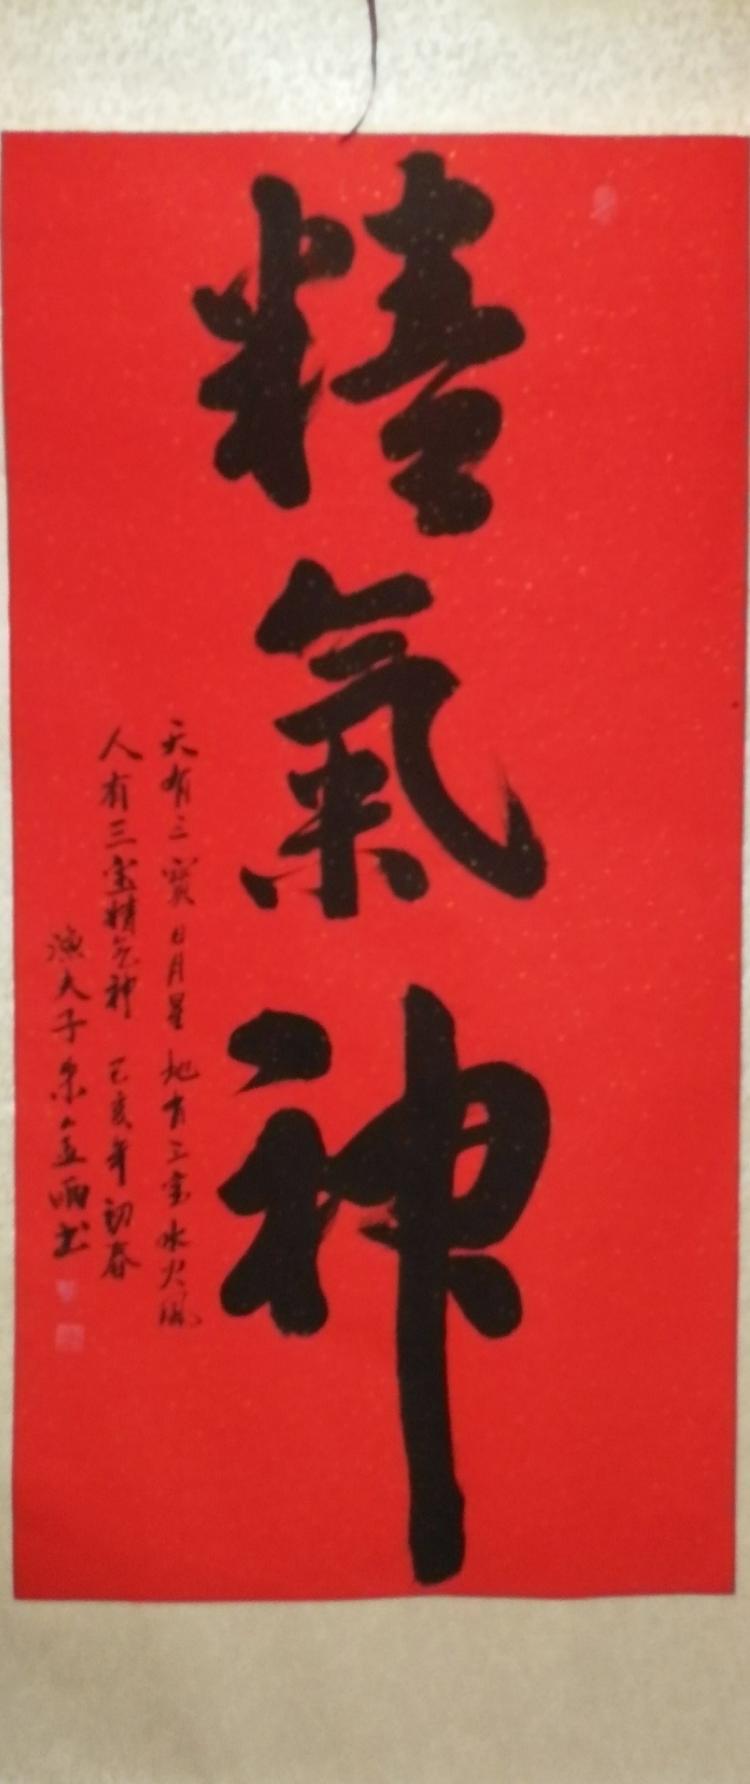 精氣神
天有三寶日月星 地有三宝水火風
人有三宝精气神 己亥年初春
漁夫子 雨书